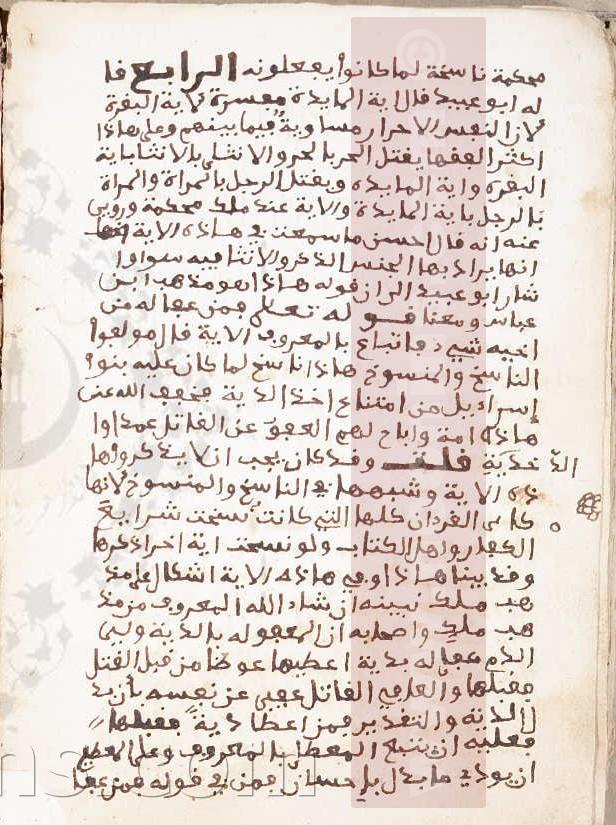 محكمة ناسخة لما كانوا يفعلونه الرابع قا
له ابو عبيد قال اية المايدة مفسرة لاية البفرة
لان النفس الاحرار مساوية فيما بينهم وعلى هاذا
اكثر الفقها يقتل الحر بالحر والانثى بالانثى باية
البفرة واية المايدة ويقتل الرجل بالمراة والمراة
بالرجل باية المايدة والاية عند ملك محكمة وروي
عنه انه قال احسن ما سمعت في هاذه الاية
انها يراد بها الجنس الذكر والانثا فيه سوا وا
شار ابو عبيد الى ان قوله هاذا هو مذهب ابن
عباس ومعنا قوله تعلى فمن عفا له من
اخيه شيء فاتباع بالمعروف الاية قال مولفوا
الناسخ والمنسوخ هاذا ناسخ لما كان عليه بنوا
إسراءيل من امتناع اخذ الدية فخفف الله عن
هاذه الامة واباح لهم العفو عن القاتل عمدا وا
لاخذ الدية قلت وقد كان يجب ان لا يذكروا ها
ذه الاية وشبهها في الناسخ والمنسوخ لانها
كاي القرءان كلها التي كانت نسخت شرايع
الكفار واهل الكتاب ولو نسخت اية اخرا ذكرها
وقد بينا هاذا وفي هاذه الاية اشكال على مذ
هب ملك نبينه ان شاء الله المعروف من مذ
هب ملك واصحابه ان المعفو له بالدية ولي
الدم عفا له بدية اعطيها عوضا من قبل القتل
فقبلها والعافي القاتل عفى عن نفسه باذ
الدية والتقدير فمن اعطا دية فقبلها
فعليه ان يتبع المعطا بالمعروف وعلى المعطي
ان يودي ما بذل بإحسان فمن في قوله فمن عفا